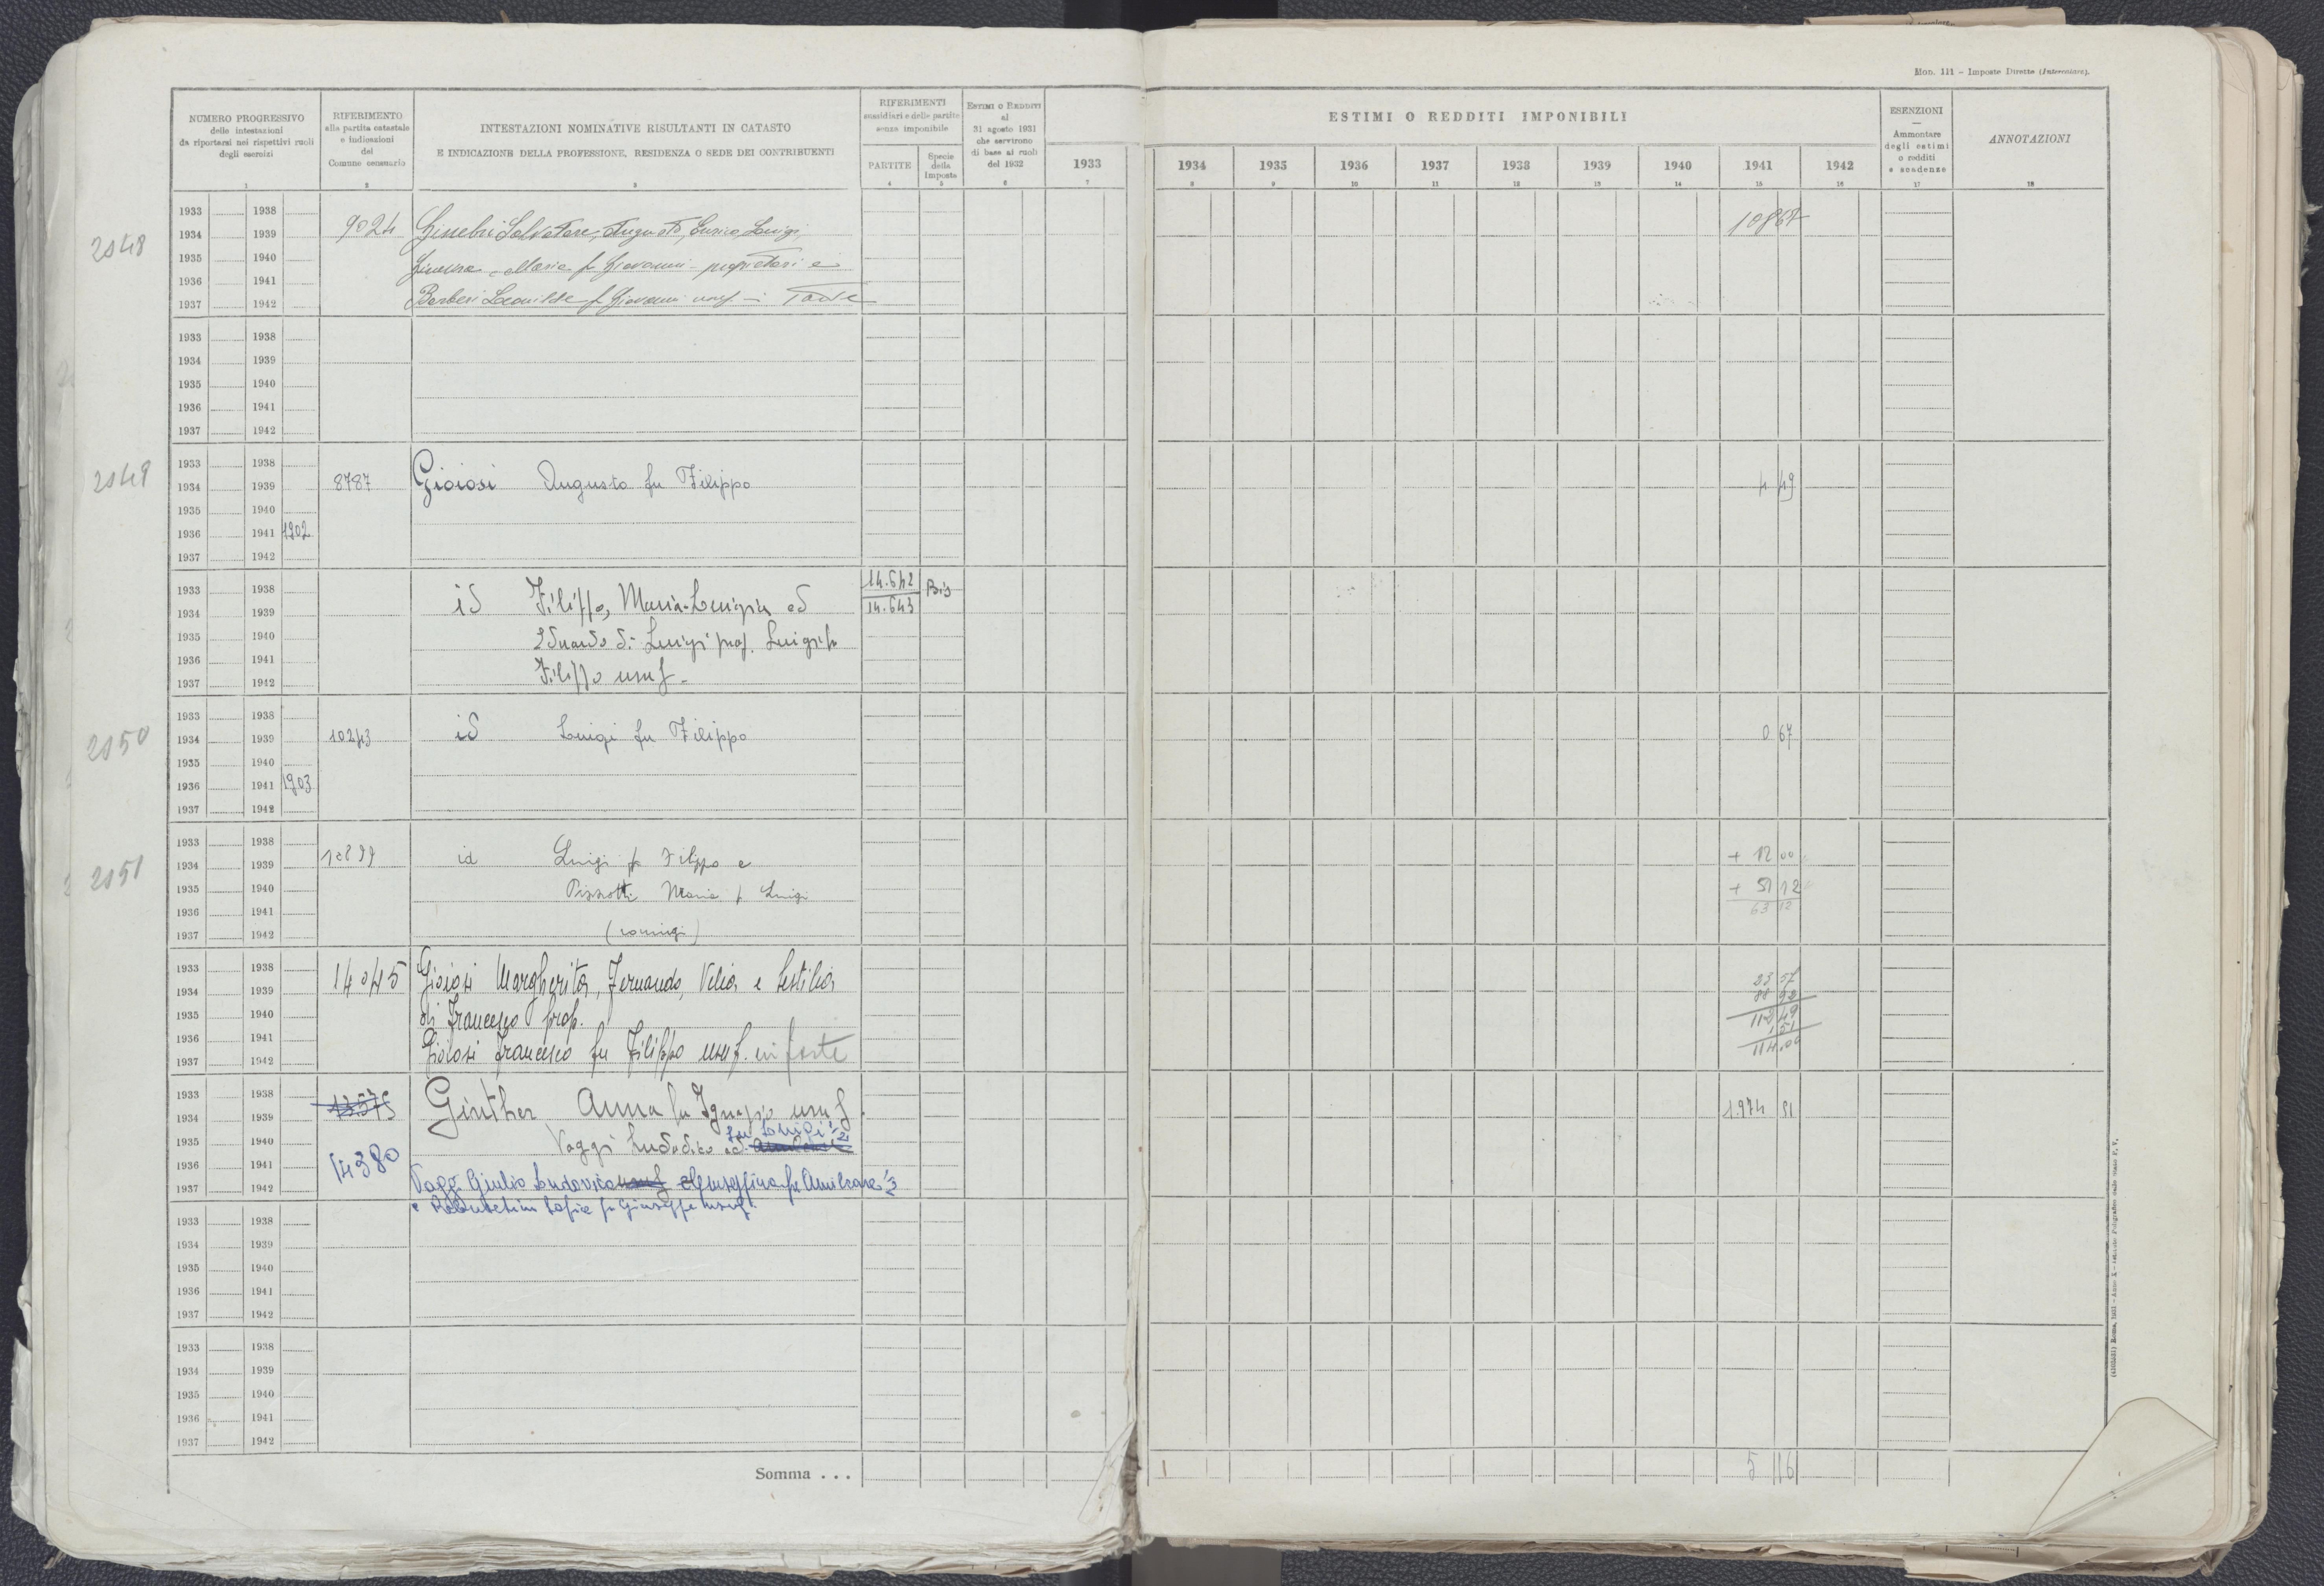 Mod. 111 - Imposte Dirette (Intercalare).
NUMERO PROGRESSIVO
delle intestazioni
da riportarsi nei rispettivi ruoli
degli esercizi
RIFERIMENTO
alla partita catastale
e indicazioni
del
Comune censuario
INTESTAZIONI NOMINATIVE RISULTANTI IN CATASTO
E INDICAZIONE DELLA PROFESSIONE, RESIDENZA O SEDE DEI CONTRIBUENTI
RIFERIMENTI
sussidiari e delle partite
senza imponibile
PARTITE
Specie
della
Imposta
ESTIMI O REDDITI
al
31 agosto 1931
che servirono
di base ai ruoli
del 1932
ESTIMI O REDDITI IMPONIBILI
1933 1934 1935 1936 1937 1938 1939 1940 1941 1942
ESENZIONI
—
Ammontare
degli estimi
o redditi
e scadenze
ANNOTAZIONI
1 2 3 4 5 6 7 8 9 10 11 12 13 14 15 16 17 18
1933 1938
2048 1934 1939 9024 Ginebri Salvatore, Augusto, Enrico, Luigi,
1935 1940 Ginevra, Maria fu Giovanni - proprietari e
1936 1941
1937 1942 Barberi Leonilde fu Giovanni usuf
1933 1938
1934 1939
1935 1940
1936 1941
1937 1942
1933 1938
2049 1934 1939 8787 Gioiosi Augusto fu Filippo 4 49
1935 1940
1936 1941 1902
1937 1942
1933 1938 id Filippo, Maria-Luigia ed 14.642 Bis
1934 1939 14.643
1935 1940 Eduardo di Luigi prop. Luigi fu
1936 1941
1937 1942 Filippo usuf.
1933 1938
2050 1934 1939 10243 id Luigi fu Filippo 0 67
1935 1940
1936 1941 1903
1937 1942
1933 1938
2051 1934 1939 10899 id Luigi fu Filippo e + 12 00
1935 1940 Pizzotti Maria fu Luigi + 51 12
1936 1941 63 12
1937 1942 (coniugi)
1933 1938 14045 Gioiosi Margherita, Fernando, Velia e Sestilia 23 57
1934 1939 88 92
1935 1940 di Francesco prop. 112 49
1936 1941 1 51
1937 1942 Gioiosi Francesco fu Filippo usuf. in parte 114.00
1933 1938 13575 Ginther Anna fu Ignazio usuf
1934 1939 1.974 51
1935 1940 Vaggi Ludovico ed fu Luigi 1/2
1936 1941 14380
1937 1942 Vaggi Giulio Ludovico Giuseppina fu Amilcare 1/2
Sofia fu Giuseppe usuf.
1933 1938
1934 1939
1935 1940
1936 1941
1937 1942
1933 1938
1934 1939
1935 1940
1936 1941
1937 1942
Somma . . . 5 16